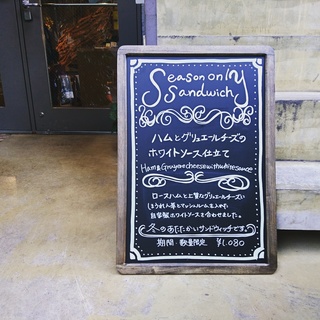 Season only
Sandwich
ハムとグリュエールチーズの
ホワイトソース仕立て
Ham&Gruyerecheesewithwhitesauce
ロースハムと上質なグリュエールチーズに
ほうれん草とマッシュルームを入れた
自家製ホワイトソースを合わせました。
冬のあたたかいサンドウィッチです。
期間・数量限定 ¥1,080